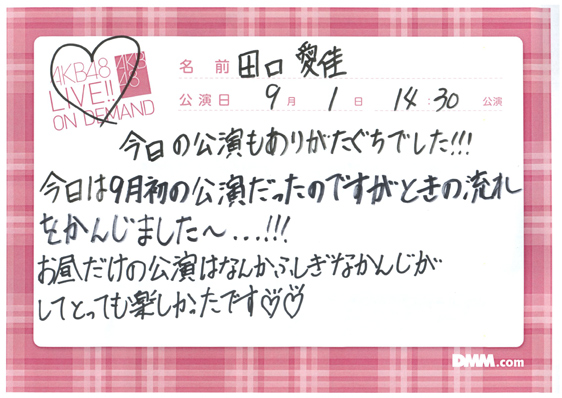 AKB48
LIVE!!
ON DEMAND
AKB
48
名前 田口 愛佳
公演日 9月 1日 14:30 公演
今日の公演もありがたぐちでした!!!
今日は9月初の公演だったのですがときの流れ
をかんじました〜...!!!
お昼だけの公演はなんかふしぎなかんじが
してとっても楽しかったです♡♡
DMM.com